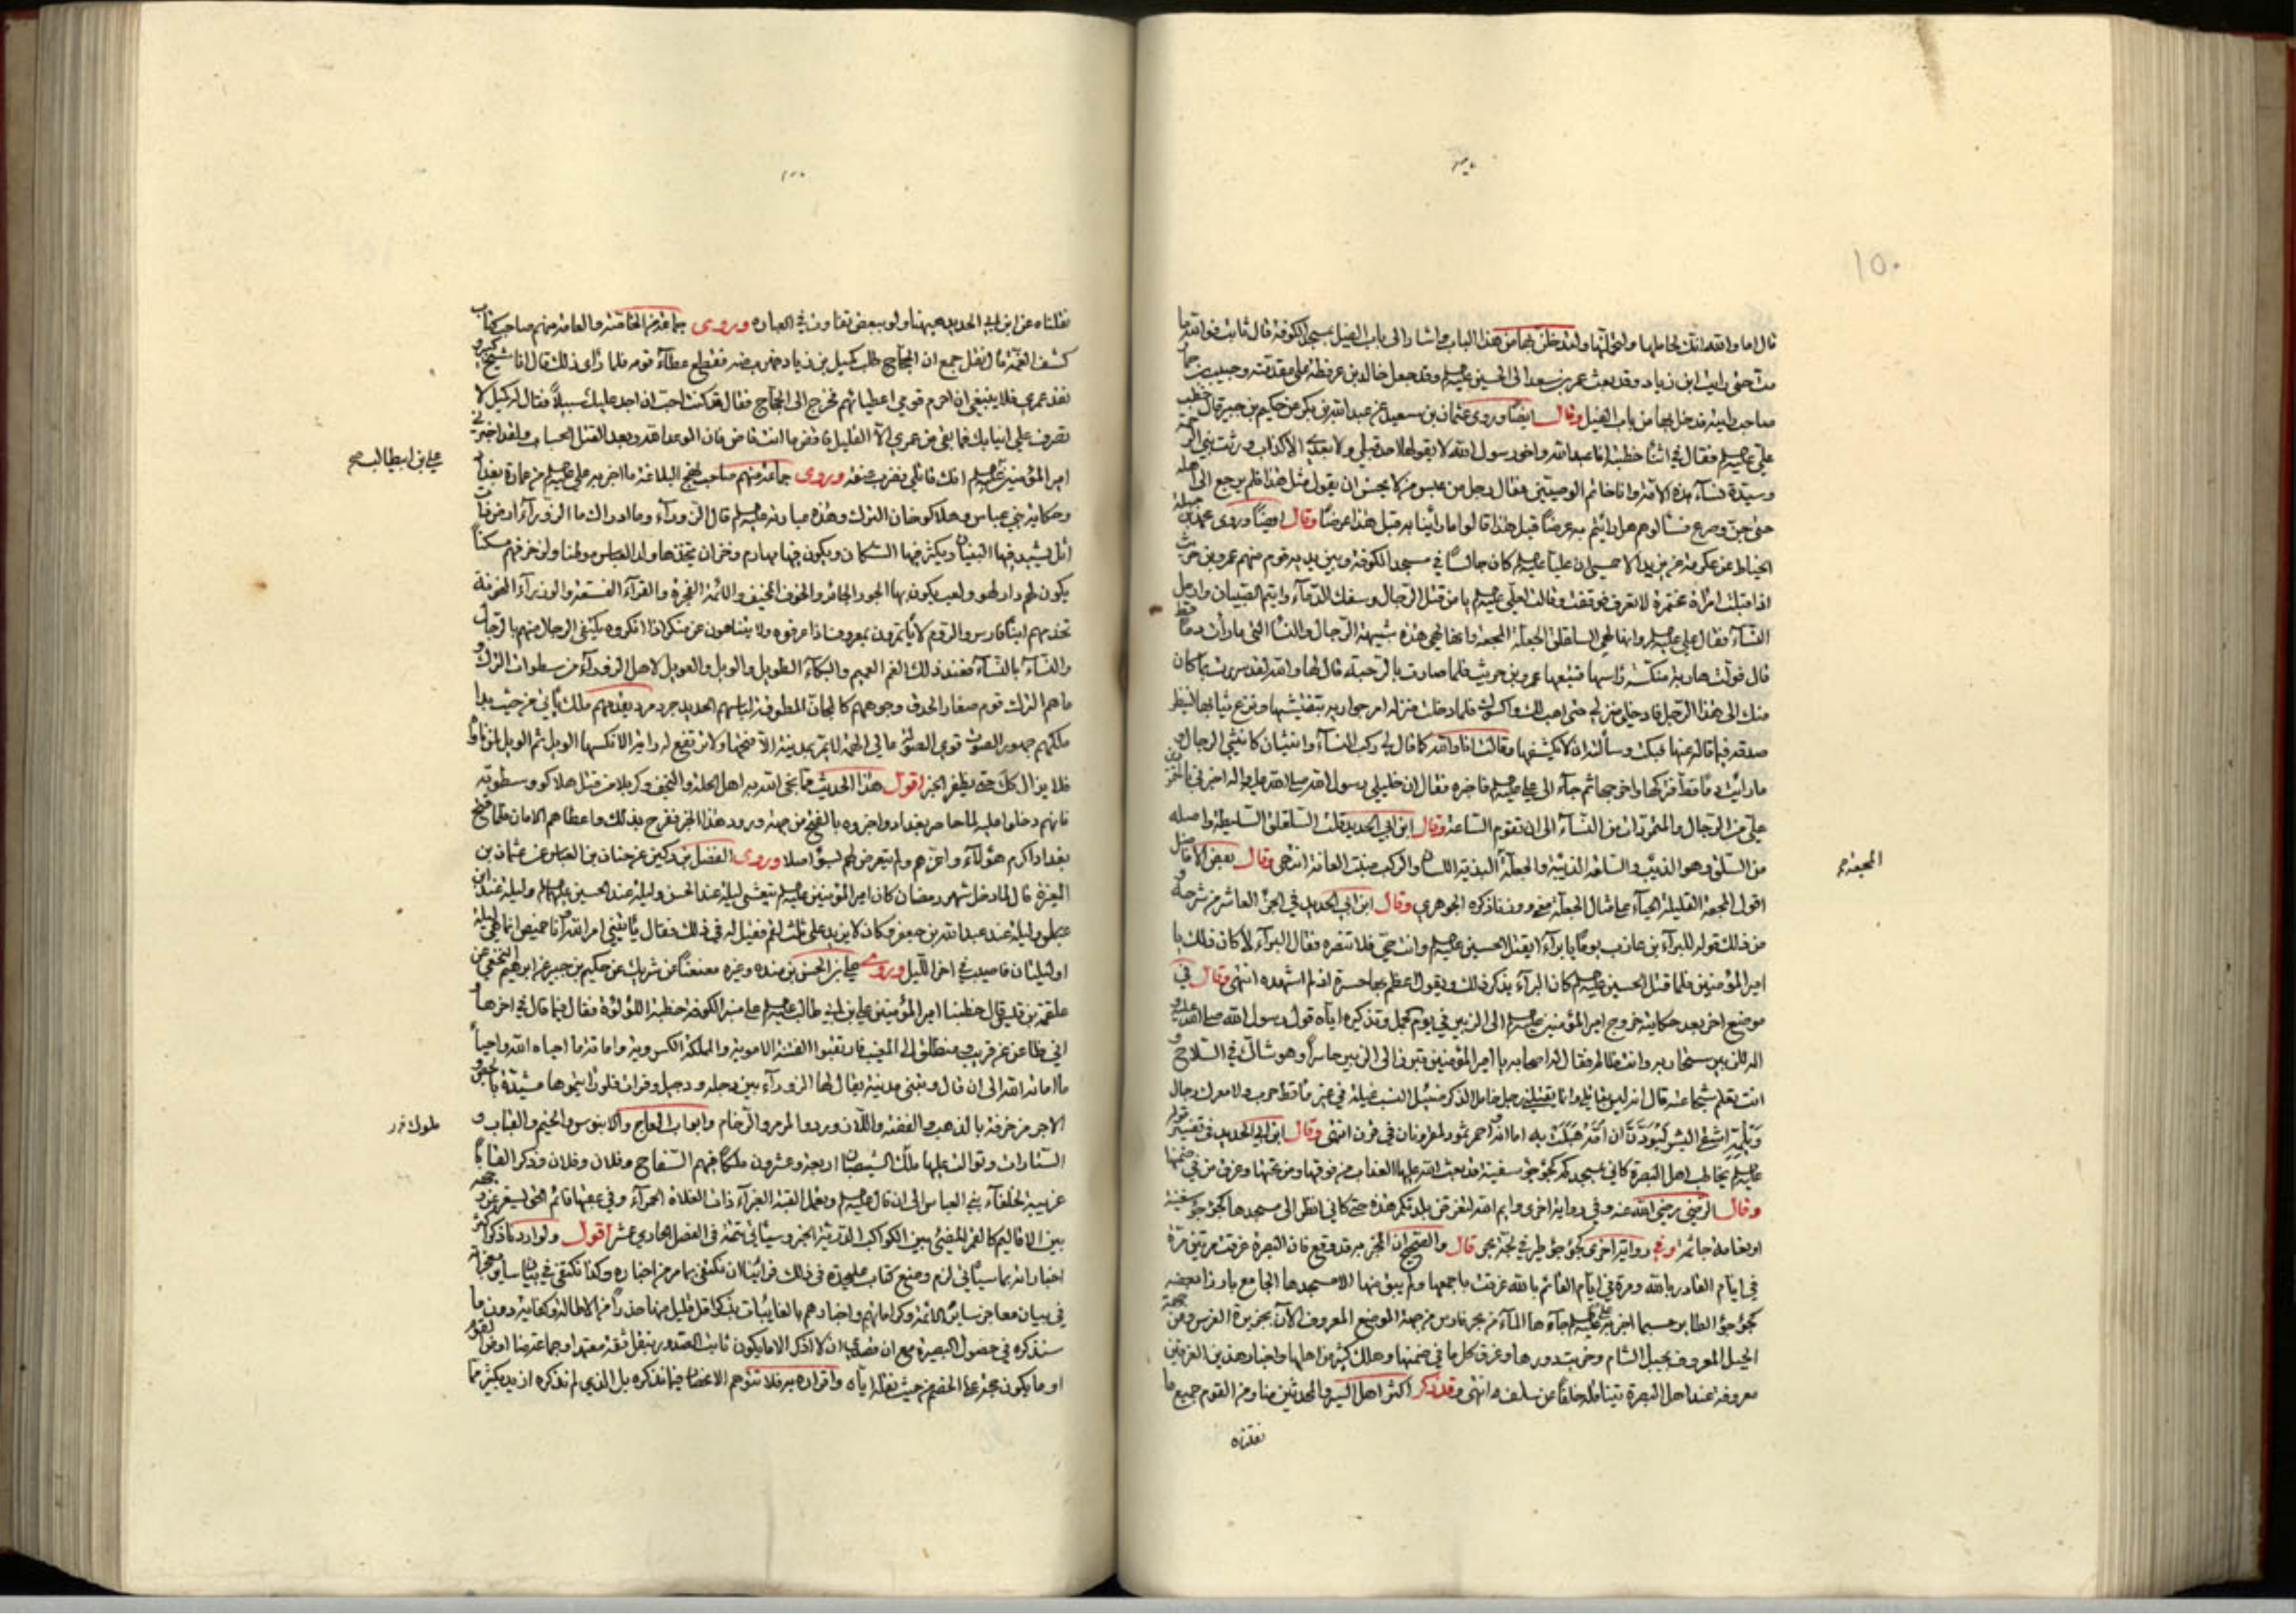 ١٥٠
قال اما والله انك لحاملها ولتحملنها ولتدخلن بها من هذا الباب واشار الى باب الفيل بمسجد الكوفة قال ثابت فوالله ما
مت حتى رايت ابن زياد وقد بعث عمر بن سعد الى الحسين عليه وقد جعل خالد بن عرفطة على مقدمته وحبيب بن حماز
صاحب رايته فدخل بها من باب الفيل وقال ايضا وروى عثمان بن سعيد عن عبد الله بن بكير عن حكيم بن جبير قال خطب
علي عليه فقال في اثناء خطبته انا عبد الله واخو رسول الله لا يقولها احد قبلي ولا بعدي الا كذاب ورثت نبي الرحمة
وسيدة نساء هذه الامة وانا خاتم الوصيين فقال رجل من عبس من لا يحسن ان يقول مثل هذا فلم يرجع الى اهله
حتى جن وصرع فسالوهم هل رايتم به عرضا قبل هذا قالوا ما راينا به قبل هذا عرضا وقال ايضا وروى محمد بن جبلة
الخياط عن عكرمة عن يزيد الاحمسي ان عليا عليه كان جالسا في مسجد الكوفة وبين يديه قوم منهم عمرو بن حريث
اذ اقبلت امراة مختمرة لا تعرف فوقفت فقالت لعلي عليه يا من قتل الرجال وسفك الدماء وايتم الصبيان وارمل
النساء فقال علي عليه وانها لهي السلقلق الجلعة المجعة وانها لهي هذه شبيهة الرجال والنساء التي ما رات دما قط
قال فولت هاربة منكسة راسها فتبعها عمرو بن حريث فلما صارت بالرحبة قال لها والله لقد سررت بما كان
منك الى هذا الرجل فادخلي منزلي حتى اهب لك واكسوك فلما دخلت منزله امر جواريه بتفتيشها ونزع ثيابها لينظر
صدقه فيما قاله عنها فبكت وسالته ان لا يكشفها وقالت انا والله كما قال لي ركب النساء وانثيان كانثي الرجال
ما رايت دما قط فتركها واخرجها ثم جاء الى علي عليه فاخبره فقال ان خليلي رسول الله صلى الله عليه واله اخبرني
علي من الرجال والمتمردات من النساء الى ان تقوم الساعة وقال ابن ابي الحديد قلت السلقلق السليطة واصله
من السلق وهو الذئب والسلقة الذئبة والجلعة البذية اللسان والركب منبت العانة انتهى وقال بعض الافاضل
اقول المجعة القليلة الحياء مثال الجلعة ذكره الجوهري وقال ابن ابي الحديد في الجزء العاشر من شرحه
من ذلك قوله للبراء بن عازب يوما يا براء ايقتل الحسين عليه وانت حي فلا تنصره فقال البراء لا كان ذلك يا
امير المؤمنين فلما قتل الحسين عليه كان البراء يذكر ذلك ويقول اعظم بها حسرة اذ لم اشهده انتهى وقال في
موضع اخر بعد حكاية خروج امير المؤمنين عليه الى الزبير في يوم الجمل وتذكيره اياه قول رسول الله صلى الله عليه و
اله للزبير ستحاربه وانت ظالم فقال له اصحابه يا امير المؤمنين تبرز الى الزبير حاسرا وهو شاك في السلاح و
انت تعلم شجاعته قال انه ليس بقاتلي وانما يقتلني رجل خامل الذكر ضئيل النسب غيلة في غير ماقط حرب ولا معرك رجال
ويلمه اشقى البشر ليودن ان امه هبلت به اما انه واحمر ثمود لمقرونان في قرن انتهى وقال ابن ابي الحديد في تفسير قوله
عليه يخاطب اهل البصرة كاني بمسجدكم كجؤجؤ سفينة قد بعث الله عليها العذاب من فوقها ومن تحتها وغرق من في ضمنها
وقال الرضي رضي الله عنه وفي رواية اخرى وايم الله لتغرقن بلدتكم هذه حتى كاني انظر الى مسجدها كجؤجؤ سفينة
او نعامة جاثمة وفي رواية اخرى كجؤجؤ طير في لجة بحر قال والصحيح ان المخبر به قد وقع فان البصرة غرقت مرتين مرة
في ايام القادر بالله ومرة في ايام القائم بالله غرقت باجمعها ولم يبق منها الا مسجدها الجامع بارزا بعضه
كجؤجؤ الطاير حسبما اخبر به عليه جاءها الماء من بحر فارس من جهة الموضع المعروف الآن بجزيرة الفرس ومن جهة
الجبل المعروف بجبل السنام وخربت دورها وغرق كل ما في ضمنها وهلك كثير من اهلها واخبار هذين الغرقين
معروفة عند اهل البصرة يتناقله خلفا عن سلف انتهى وقد ذكر اكثر اهل السير والمحدثين منا ومن القوم جميع ما
نقلناه
المجعة
نقلناه عن ابن ابي الحديد هيهنا ولو ببعض تفاوت في العبارة وروى جماعة من الخاصة والعامة منهم صاحب كتاب
كشف الغمة ان الحجاج طلب كميل بن زياد فهرب منه فقطع عطاء قومه فلما راى ذلك قال انا شيخ كبير و
نفد عمري فلا ينبغي ان احرم قومي اعطياتهم فخرج الى الحجاج فقال قد كنت احب ان اجد عليك سبيلا فقال له كميل لا
تصرف علي انيابك فما بقي من عمري الا القليل فاقض ما انت قاض فان الموعد الله وبعد القتل الحساب ولقد اخبرني
امير المؤمنين عليه انك قاتلي فضرب عنقه وروى جماعة منهم صاحب نهج البلاغة ما اخبر به علي عليه من عمارة بغداد
وحكاية بني عباس وهلاكو خان الترك وهذه عبارته عليه قال الزوراء وما ادراك ما الزوراء ارض ذات
اثل يشيد فيها البنيان ويكثر فيها السكان ويكون فيها مهادم وخزان يتخذها ولد العباس موطنا ولزخرفهم مسكنا
يكون لهم دار لهو ولعب يكون بها الجور الجائر والخوف المخيف والائمة الفجرة والقراء الفسقة والوزراء الخونة
تخدمهم ابناء فارس والروم لا ياتمرون بمعروف اذا عرفوه ولا يتناهون عن منكر اذا انكروه يكتفي الرجال منهم بالرجال
والنساء بالنساء فعند ذلك الغم العميم والبكاء الطويل والويل والعويل لاهل الزوراء من سطوات الترك و
ما هم الترك قوم صغار الحدق وجوههم كالمجان المطوقة لباسهم الحديد جرد مرد يقدمهم ملك ياتي من حيث بدا
ملكهم جهوري الصوت قوي الصولة عالي الهمة لا يمر بمدينة الا فتحها ولا ترفع له راية الا نكسها الويل ثم الويل لمن ناواه
فلا يزال كذلك حتى يظفر الخبر اقول هذا الحديث مما نجى الله به اهل الحلة والنجف وكربلا من قتل هلاكو وسطوته
فانهم دخلوا عليه لما حاصر بغداد واخبروه بالفتح من جهة ورود هذا الخبر ففرح بذلك واعطاهم الامان فلما فتح
بغداد اكرم هؤلاء واعزهم ولم يتعرض لهم بسوء اصلا وروى الفضل بن دكين عن حنان بن العباس عن عثمان بن
المغيرة قال لما دخل شهر رمضان كان امير المؤمنين عليه يتعشى ليلة عند الحسن وليلة عند الحسين عليهما وليلة عند ابن
عباس وليلة عند عبد الله بن جعفر فكان لا يزيد على ثلاث لقم فقيل له في ذلك فقال ياتيني امر الله وانا خميص انما هي ليلة
او ليلتان فاصيب في اخر الليل وروى علي بن الحسن بن منده وغيره معنعنا عن شريك عن حكيم بن جبير عن ابراهيم النخعي عن
علقمة بن قيس قال خطبنا امير المؤمنين علي بن ابي طالب عليه على منبر الكوفة خطبة اللؤلؤة فقال فيما قال في اخرها
اني ظاعن عن قريب ومنطلق الى المغيب فارتقبوا الفتنة الاموية والمملكة الكسروية واماتة ما احياه الله واحياء
ما اماته الله الى ان قال وتبنى مدينة يقال لها الزوراء بين دجلة ودجيل وفرات فلو رايتموها مشيدة بالجص و
الاجر مزخرفة بالذهب والفضة واللازورد والمرمر والرخام وابواب العاج والابنوس والخيم والقباب و
الستارات وتوالت عليها ملك الشيصبان اربعة وعشرون ملكا فيهم السفاح وفلان وفلان وذكر القابا
غريبة لخلفاء بني العباس الى ان قال عليه وتعمل القبة الغبراء ذات الفلاة الحمراء وفي عقبها قائم الحق يسفر عن وجهه
بين الاقاليم كالقمر المضيء بين الكواكب الدرية الخبر وسياتي تتمة في الفصل الحادي عشر اقول ولو اردنا ذكر اكثر
اخباراته بما سياتي لزم وضع كتاب عليحدة في ذلك فراينا ان نكتفي بما مر من اخباره وكذا نكتفي في بيان ساير معجزاته
في بيان معاجز ساير الائمة وكراماتهم واخبارهم بالغايبات بذكر اقل قليل منها حذرا من الاطالة وكفاية دون ما
سنذكره في حصول البصيرة مع ان قصدي ان لا اذكر الا ما يكون ثابت الصدور بنقل ثقة معتمد او جماعة منا او من القوم
او ما يكون حجة على الخصم من حيث نقله اياه واقراره به فلا تتوهم الانحصار فيما نذكره بل الذي لم نذكره ازيد بكثير مما
علي بن ابيطالب صح